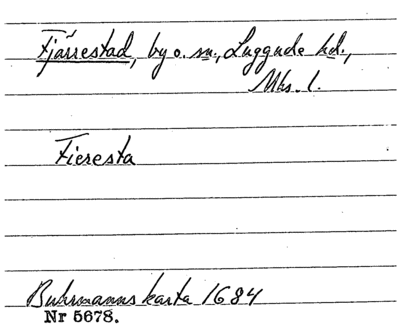 Fjärrestad, by o. sn., Luggude hd.,
Mhs. l.
Fieresta
Buhrmanns karta 1684
Nr 5678.